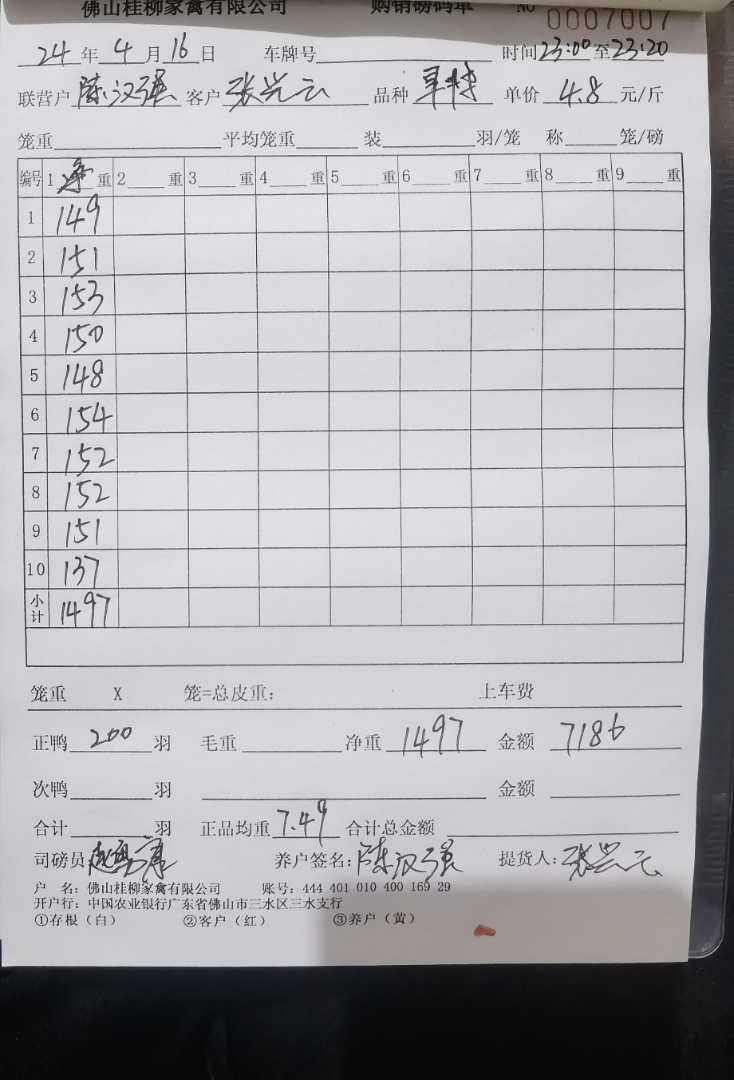 佛山桂柳家禽有限公司 购销磅码单 NO 0007007
24 年 4 月 16 日 车牌号 时间 23:00 至 23:20
联营户 陈汉强 客户 张兴云 品种 单价 4.8 元/斤
笼重 平均笼重 装 羽/笼 称 笼/磅
编号 1 净 重 2 重 3 重 4 重 5 重 6 重 7 重 8 重 9 重
1 149
2 151
3 153
4 150
5 148
6 154
7 152
8 152
9 151
10 137
小计 1497
笼重 X 笼=总皮重: 上车费
正鸭 200 羽 毛重 净重 1497 金额 7186
次鸭 羽 金额
合计 羽 正品均重 7.49 合计总金额
司磅员 养户签名: 陈汉强 提货人: 张兴云
户 名: 佛山桂柳家禽有限公司 账号: 444 401 010 400 169 29
开户行: 中国农业银行广东省佛山市三水区三水支行
①存根（白） ②客户（红） ③养户（黄）